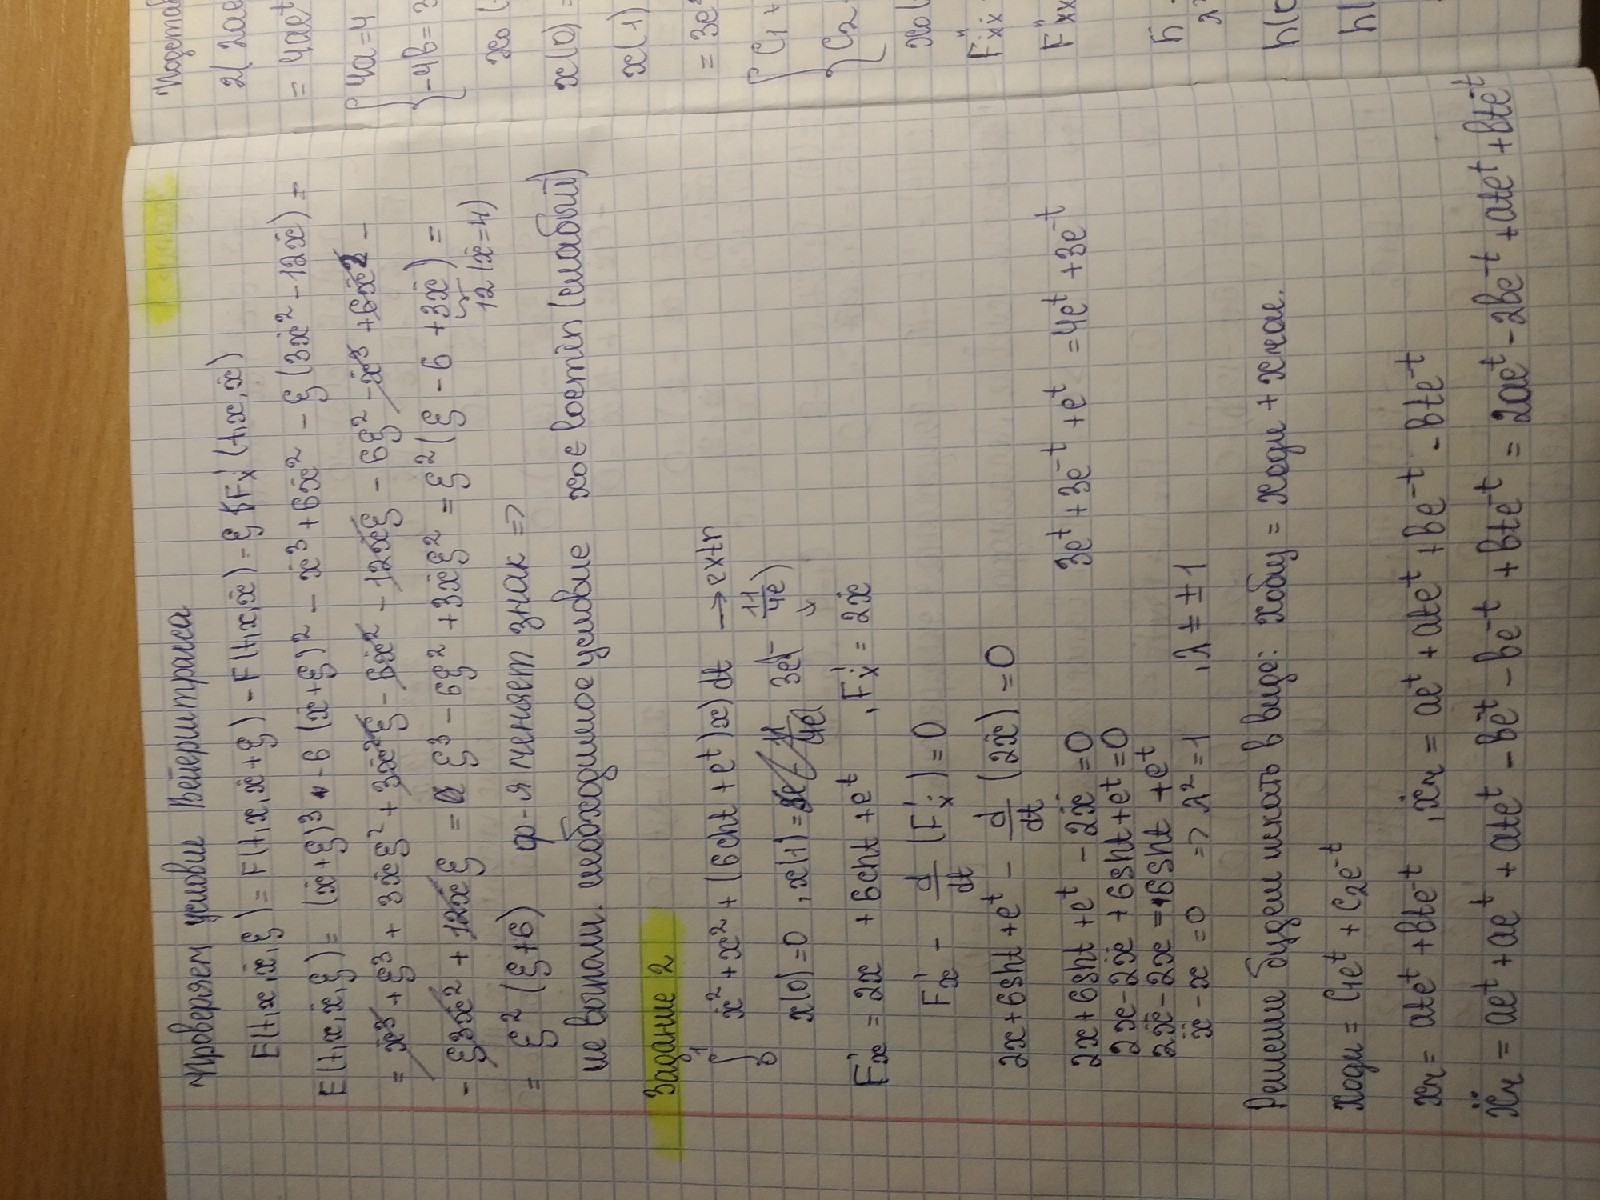 Проверяем условие Вейерштрасса
E(t,x,ẋ,ξ) = F(t,x,ẋ+ξ) - F(t,x,ẋ) - ξ F'ẋ (t,x,ẋ)
E(t,x,ẋ,ξ) = (ẋ+ξ)³ - 6(ẋ+ξ)² - ẋ³ + 6ẋ² - ξ(3ẋ² - 12ẋ) =
= ẋ³ + ξ³ + 3ẋξ² + 3ẋ²ξ - 6ẋ² - 12ẋξ - 6ξ² - ẋ³ + 6ẋ² -
- ξ3ẋ² + 12ẋξ = ξ³ - 6ξ² + 3ẋξ² = ξ²(ξ - 6 + 3ẋ) =
12 (ẋ=4)
= ξ² (ξ+6) ф-я меняет знак =>
не выполн. необходимое условие x₀ ∈ locmin (слабый)
Задание 2
∫₀¹ ẋ² + x² + (6sht + eᵗ)x) dt → extr
x(0)=0 , x(1) = 3e(- 11/4e)
F'x = 2x + 6sht + eᵗ , F'ẋ = 2ẋ
F'x - d/dt (F'ẋ) = 0
2x + 6sht + eᵗ - d/dt (2ẋ) = 0
2x + 6sht + eᵗ - 2ẍ = 0 3eᵗ + 3e⁻ᵗ + eᵗ = 4eᵗ + 3e⁻ᵗ
2x - 2ẍ + 6sht + eᵗ = 0
2ẍ - 2x = 6sht + eᵗ
ẍ - x = 0 => λ² = 1 , λ = ±1
Решение будем искать в виде: xобщ = xодн + xчас.
xодн = C₁eᵗ + C₂e⁻ᵗ
xч = ateᵗ + bte⁻ᵗ , ẋч = aeᵗ + ateᵗ + be⁻ᵗ - bte⁻ᵗ
ẍч = aeᵗ + aeᵗ + ateᵗ - be⁻ᵗ - be⁻ᵗ + bte⁻ᵗ = 2aeᵗ - 2be⁻ᵗ + ateᵗ + bte⁻ᵗ
Подстав
2( 2ae
= 4aeᵗ
4a = 4
-4b = 3
x₀ (
x(0) =
x(1)
= 3e
C₁ +
C₂
x₀(
F''ẋẋ
F''xx
h
h(
h(